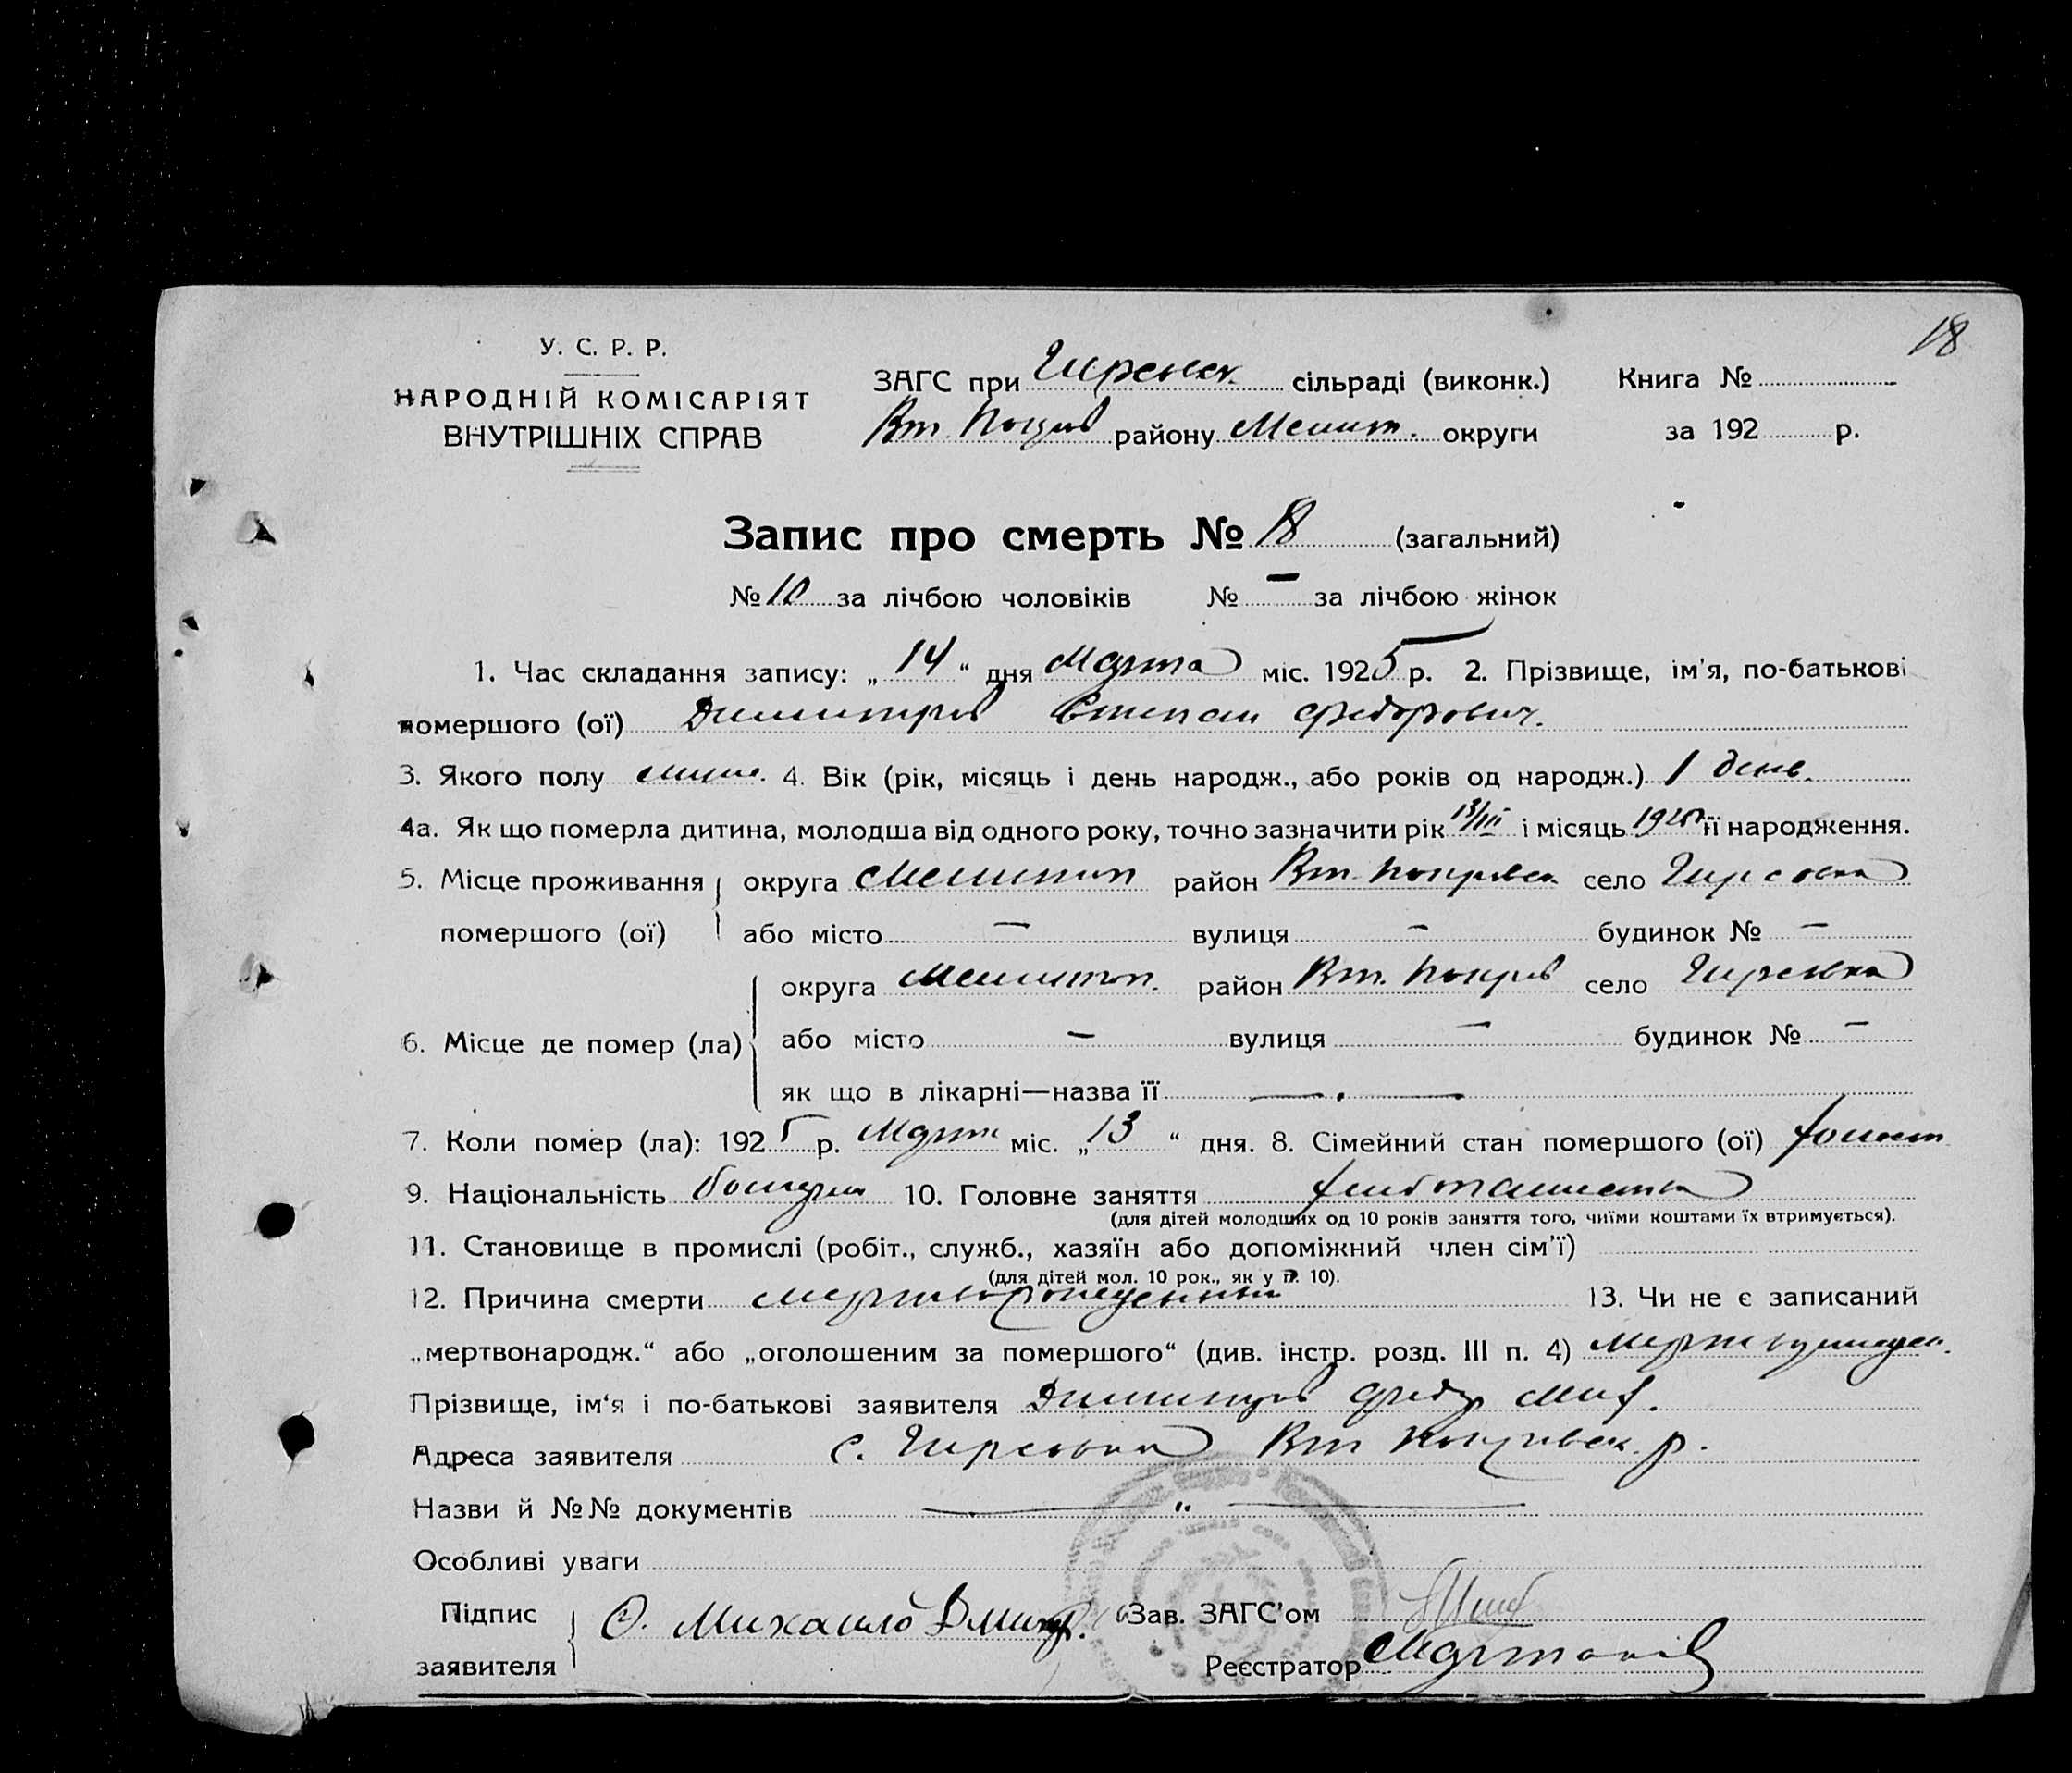 18
У. С. Р. Р.
НАРОДНІЙ КОМІСАРІЯТ
ВНУТРІШНІХ СПРАВ
ЗАГС при Гирсовск. сільраді (виконк.) Книга №
Вт. Покров району Мелит. округи за 192 р.
Запис про смерть № 18 (загальний)
№ 10 за лічбою чоловіків № — за лічбою жінок
1. Час складання запису: „ 14 “ дня Марта міс. 1925 р. 2. Прізвище, ім'я, по-батькові
помершого (ої) Димитров Степан Федорович.
3. Якого полу муж. 4. Вік (рік, місяць і день народж., або років од народж.) 1 день.
4а. Як що померла дитина, молодша від одного року, точно зазначити рік 13/III і місяць 1925 її народження.
5. Місце проживання округа Мелитоп район Вт. Покровск село Гирсовка
помершого (ої) або місто — вулиця — будинок № —
округа Мелитоп. район Вт. Покров село Гирсовка
6. Місце де помер (ла) або місто — вулиця — будинок № —
як що в лікарні—назва її —
7. Коли помер (ла): 1925 р. Март міс. „ 13 “ дня. 8. Сімейний стан помершого (ої) холост
9. Національність болгарин 10. Головне заняття хлебопашество
(для дітей молодших од 10 років заняття того, чиїми коштами їх втримується).
11. Становище в промислі (робіт., служб., хазяїн або допоміжний член сім'ї)
(для дітей мол. 10 рок., як у п. 10).
12. Причина смерти мертворожденный 13. Чи не є записаний
„мертвонародж.“ або „оголошеним за помершого“ (див. інстр. розд. III п. 4)
Прізвище, ім'я і по-батькові заявителя Димитров Федор Мих.
Адреса заявителя с. Гирсовка Вт Покровск. р.
Назви й №№ документів — „ —
Особливі уваги
Підпис О. Михаило Дмитр. Зав. ЗАГС'ом
заявителя Реєстратор